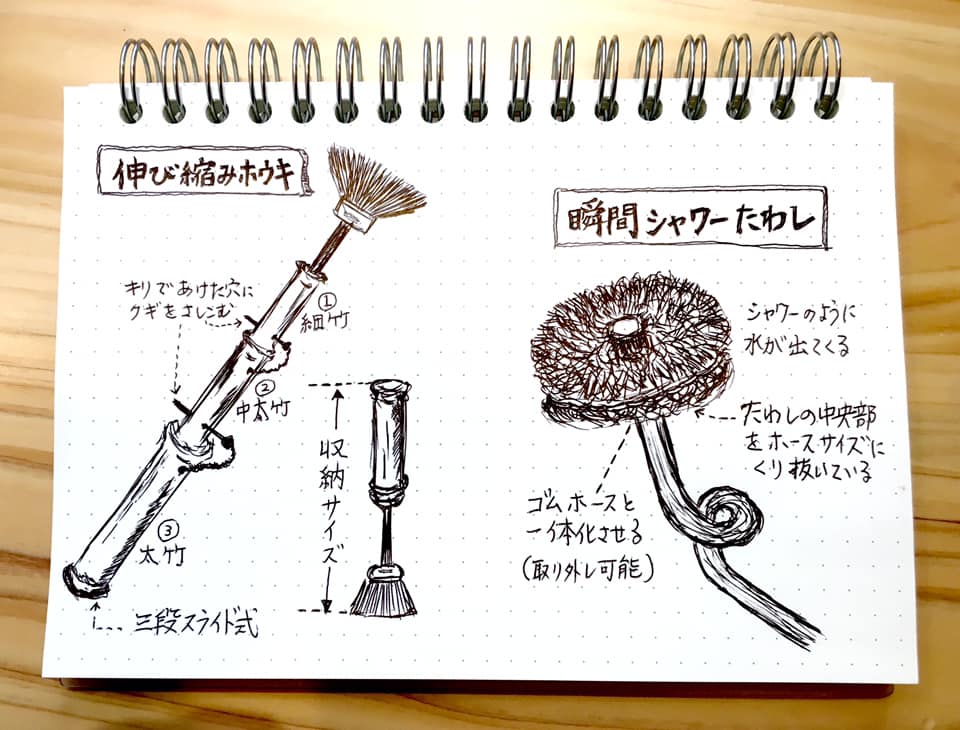 伸び縮みホウキ
キリであけた穴に
クギをさしこむ
①
細竹
②
中太竹
③
太竹
三段スライド式
収納サイズ
瞬間シャワーたわし
シャワーのように
水が出てくる
たわしの中央部
をホースサイズに
くり抜いている
ゴムホースと
一体化させる
(取り外し可能)